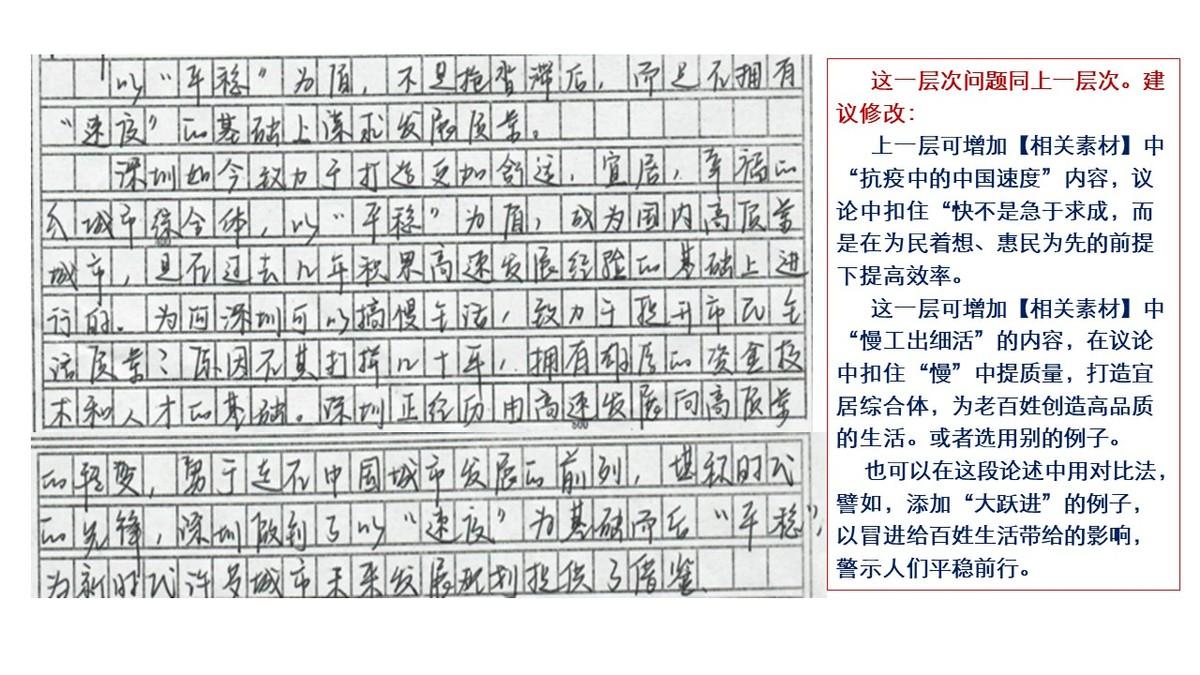 以“平稳”为盾，不是拖沓滞后，而是在拥有
“速度”的基础上谋求发展质量。
深圳如今致力于打造更加舒适、宜居，幸福的
城市综合体，以“平稳”为盾，成为国内高质量
城市，是在过去几年积累高速发展经验的基础上进
行的。为何深圳可以搞慢生活，致力于提升市民生
活质量？原因在其打拼几十年，拥有雄厚的资金技
术和人才的基础。深圳正经历由高速发展向高质量
600
的转变，勇于走在中国城市发展的前列，堪称时代
的先锋，深圳做到了以“速度”为基础而后“平稳”，
为新时代许多城市未来发展规划提供了借鉴.
这一层次问题同上一层次。建
议修改：
上一层可增加【相关素材】中
“抗疫中的中国速度”内容，议
论中扣住“快不是急于求成，而
是在为民着想、惠民为先的前提
下提高效率。
这一层可增加【相关素材】中
“慢工出细活”的内容，在议论
中扣住“慢”中提质量，打造宜
居综合体，为老百姓创造高品质
的生活。或者选用别的例子。
也可以在这段论述中用对比法，
譬如，添加“大跃进”的例子，
以冒进给百姓生活带给的影响，
警示人们平稳前行。